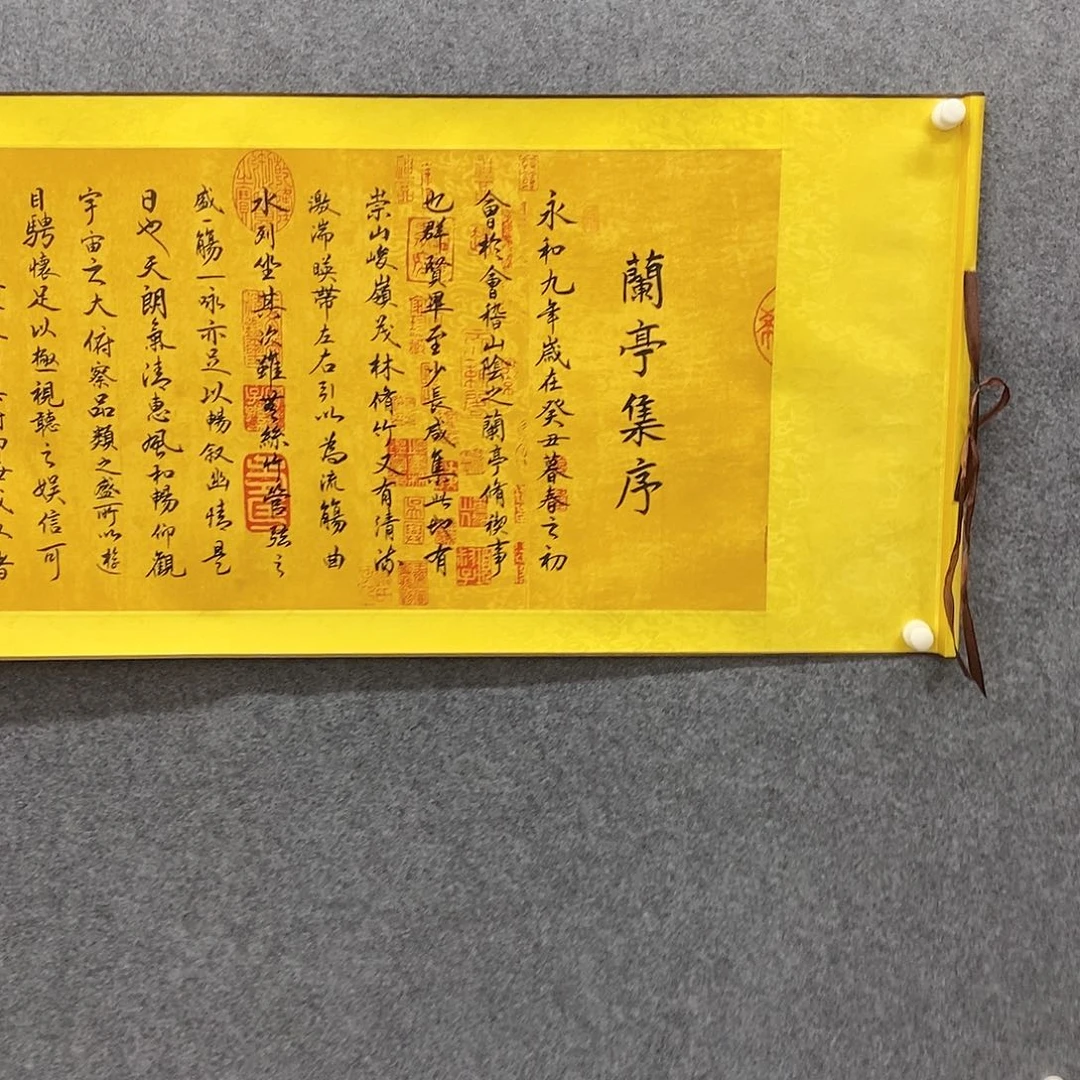 蘭亭集序
永和九年歲在癸丑暮春之初
會於會稽山陰之蘭亭脩禊事
也群賢畢至少長咸集此地有
崇山峻嶺茂林脩竹又有清流
激湍暎帶左右引以為流觴曲
水列坐其次雖無絲竹管弦之
盛一觴一詠亦足以暢叙幽情是
日也天朗氣清惠風和暢仰觀
宇宙之大俯察品類之盛所以遊
目騁懷足以極視聽之娱信可